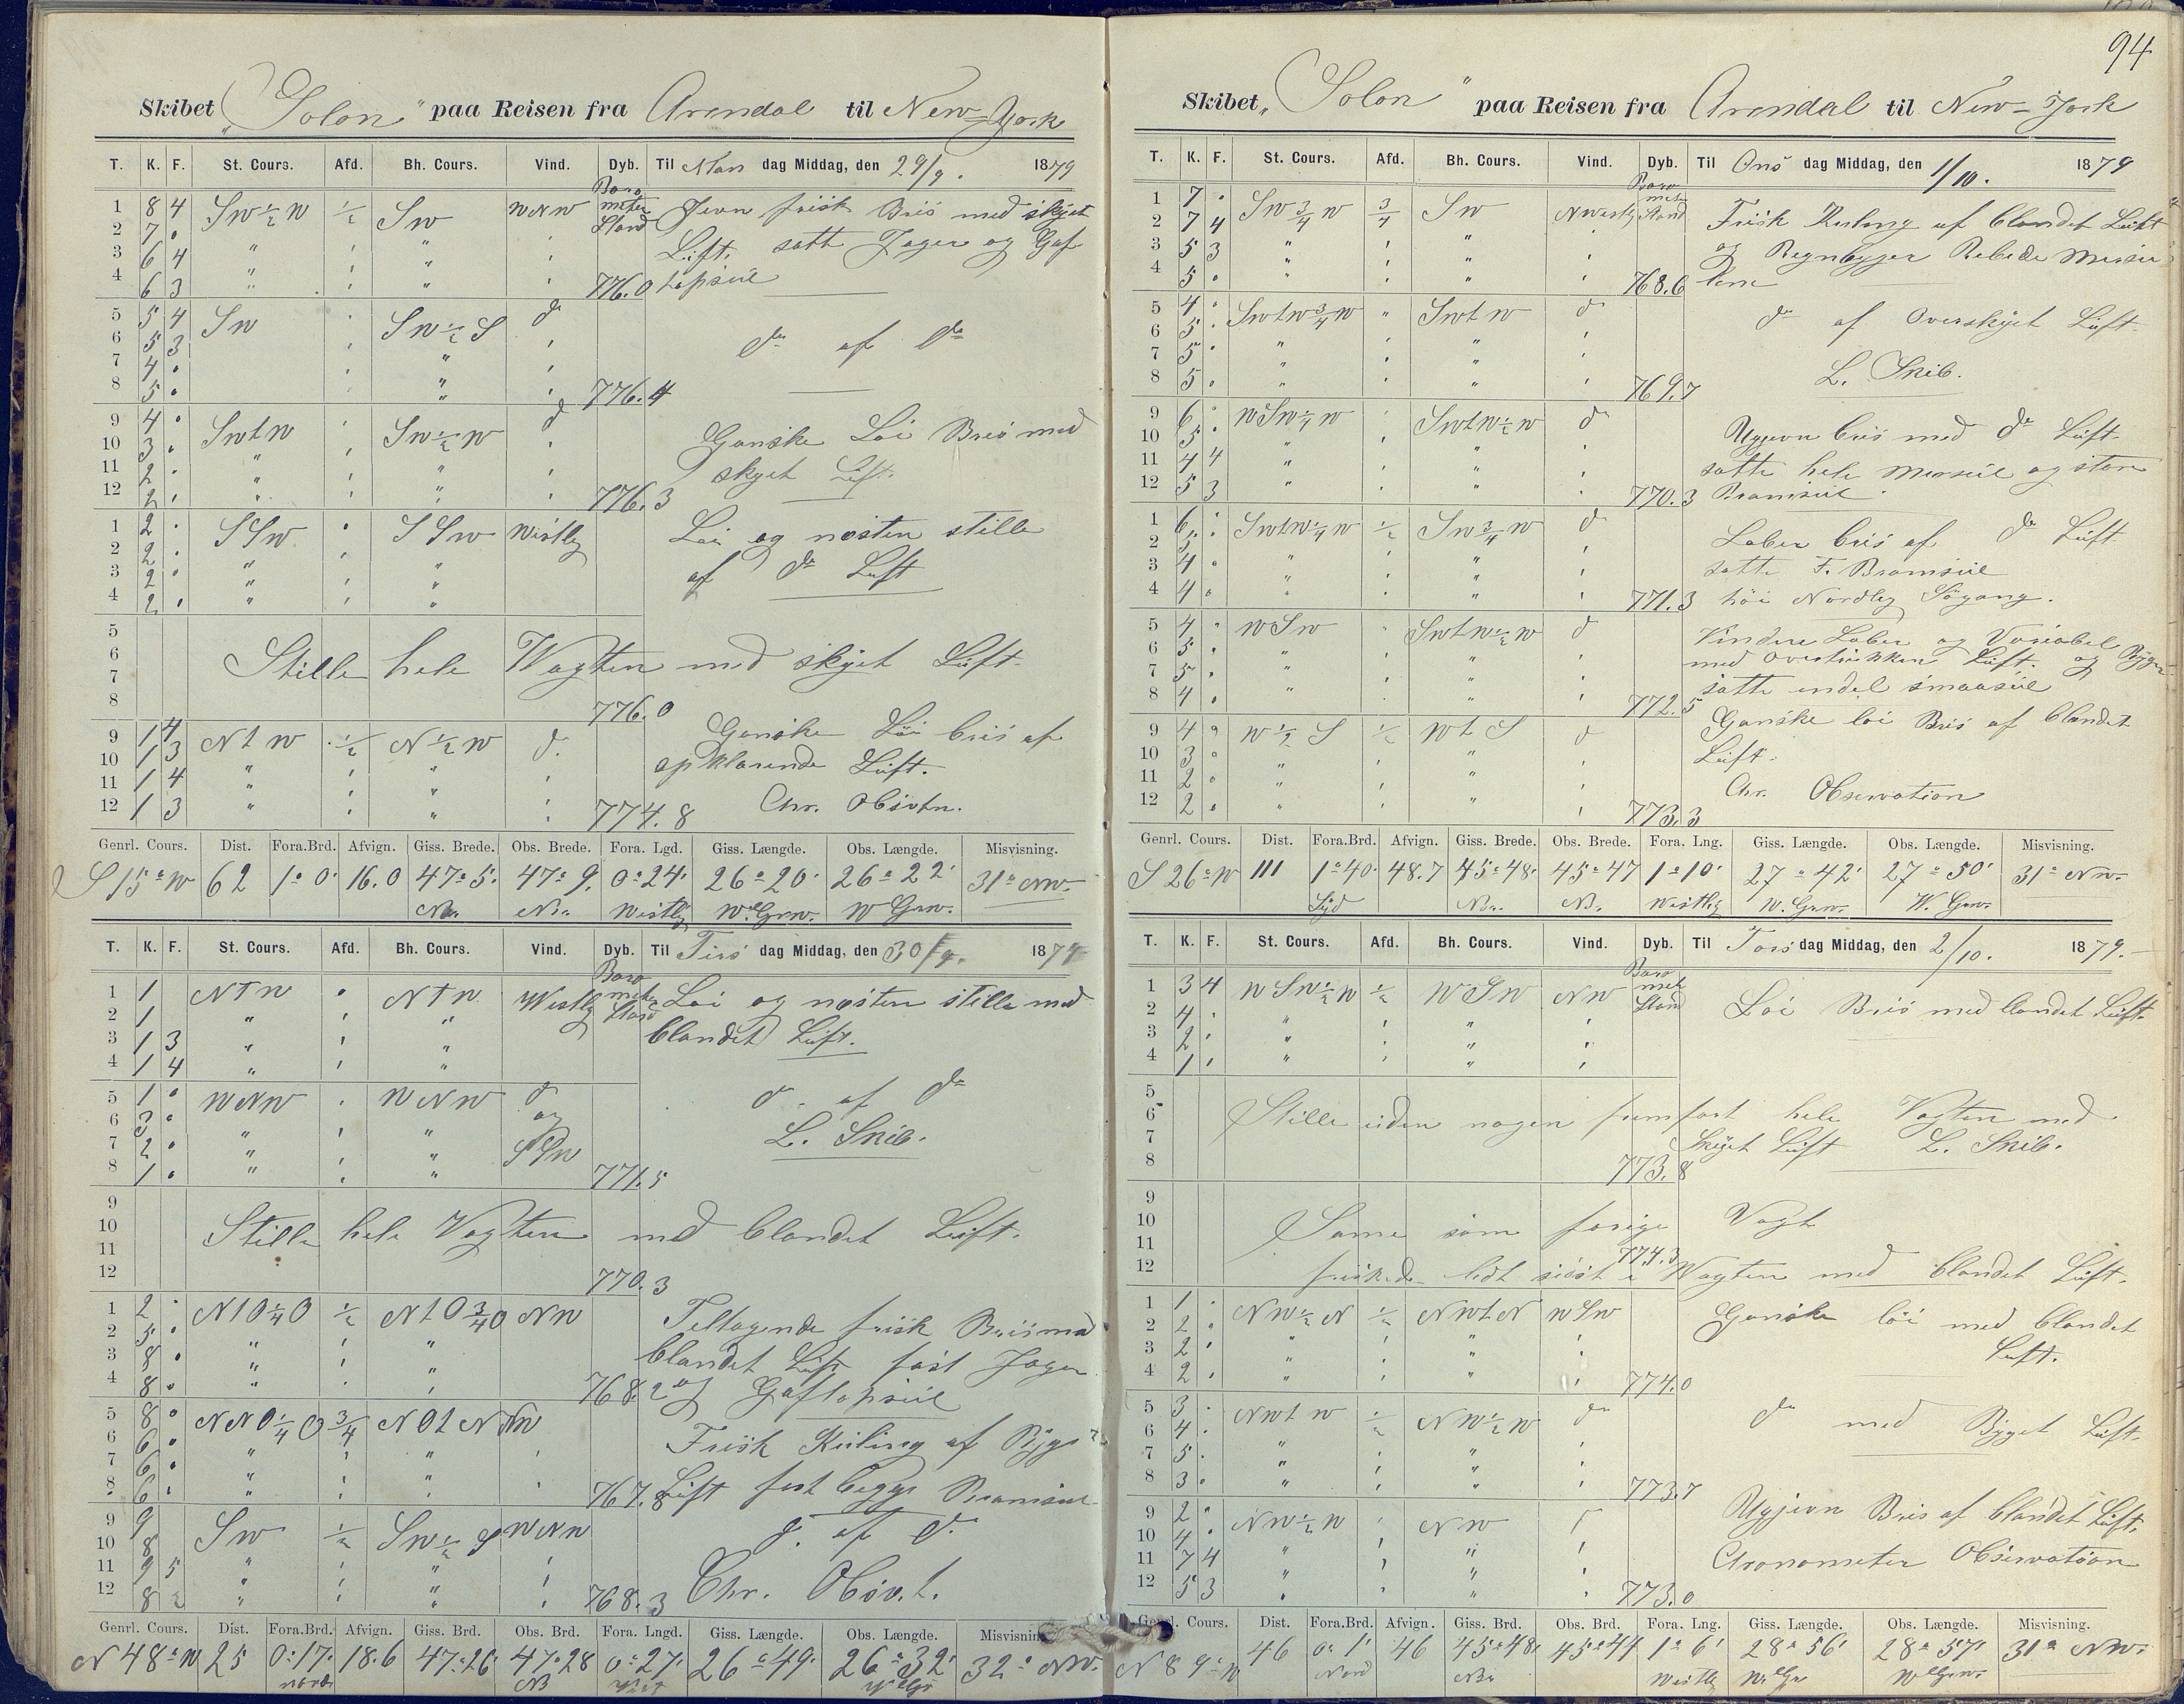 94
Skibet „Solon" paa Reisen fra Arendal til New-York
T. K. F. St. Cours. Afd. Bh. Cours. Vind. Dyb. Til Man dag Middag, den 29/9. 1879
Baro
meter
Stand
1 8 4 SW½W ½ SW WNW Jevn frisk Bris med skyet
2 7 "
3 6 4 " " Luft. satte Jager og Gaf
4 6 3 " " 776.0 topseil
5 5 4 SW SW½S do
6 5 3 do af do
7 4 "
8 5 " 776.4
9 4 " SWtW SW½W do Ganske Löi Bris med
10 3 "
11 2 " skyet Luft.
12 2 " 776.3
1 2 " SSW " SSW Westlig Löi og næsten stille
2 2 "
3 2 " af do Luft
4 2 "
5
6 Stille hele Wagten med skyet Luft.
7
8 776.0
9 1 4 NtW ½ N½W do Ganske Löi bris af
10 1 3 opklarende Luft.
11 1 4
12 1 3 774.8 Chr. Obsvtn.
Genrl. Cours. Dist. Fora.Brd. Afvign. Giss. Brede. Obs. Brede. Fora. Lgd. Giss. Længde. Obs. Længde. Misvisning.
S 15° W 62 1° 0' 16.0 47° 5' 47° 9' 0° 24' 26° 20' 26° 22' 31° NW.
Nr. Nr. Westlig W. Grw. W Grw.
T. K. F. St. Cours. Afd. Bh. Cours. Vind. Dyb. Til Tirs dag Middag, den 30/9. 1879
Baro
meter
Stand
1 1 NTW " NTW Westlig Löi og næsten stille med
2 1
3 1 3 blandet Luft.
4 1 4
5 1 " WNW " WNW do do af do
6 3 " og
7 2 " SSW L. Skib.
8 1 " 771.5
9
10 Stille hele Vagten med blandet Luft.
11
12 770.3
1 2 " NtO¼O ½ NtO¾O NW Tiltagende frisk Bris med
2 5 "
3 8 " blandet Luft fast Jager
4 8 " 768.2 og Gaftopseil
5 8 " NNO¼O ¾ NOtN NW
6 6 " Frisk Kuling af Byge
7 6 "
8 6 " 767.8 Luft fast begge Bramseil
9 9 SW ½ SW½S WNW do af do
10 8
11 9 5
12 8 2 768.3 Chr. Obsv.t.
Genrl. Cours. Dist. Fora.Brd. Afvign. Giss. Brd. Obs. Brd. Fora. Lngd. Giss. Længde. Obs. Længde. Misvisning
N 48° W 25 0° 17' 18.6 47° 26' 47° 28 0° 27' 26° 49' 26° 32' 32° NW.
Nord N
Skibet „Solon" paa Reisen fra Arendal til New-York
T. K. F. St. Cours. Afd. Bh. Cours. Vind. Dyb. Til Ons dag Middag, den 1/10. 1879
Baro
meter
Stand
1 7 " SW¾W ¾ SW NWestlig Frisk Kuling af blandet Luft
2 7 4
3 5 3 og Regnbyger Rebede Mersei
4 5 " 768.6 lene
5 4 " SWtW¾W " SWtW do do af Overskyet Luft
6 5 "
7 5 "
8 5 " 769.7 L. Skib.
9 6 " WSW¼W SWtW½W do Ujevn bris med do Luft.
10 5 "
11 4 4 satte hele Merseil og store
12 5 3 770.3 Bramseil.
1 6 " SWtW¼W ½ SW¾W do Laber bris af do Luft
2 5 "
3 4 " satte F. Bramseil
4 4 " 771.3 höi Nordlig Sögang.
5 4 " WSW " SWtW½W do Vinden Laber og Variabel
6 5 " med overtrukken Luft. og Byger
7 5 "
8 4 " 772.5 satte endel smaaseil
9 4 " W½S ½ WtS do Ganske löi Bris af blandet
10 3 " Luft.
11 2 " Chr. Observation
12 2 " 773.3
Genrl. Cours. Dist. Fora.Brd. Afvign. Giss. Brede. Obs. Brede. Fora. Lng. Giss. Længde. Obs. Længde. Misvisning.
S 26° W 111 1° 40' 48.7 45° 48' 45° 47 1° 10' 27° 42' 27° 50' 31° NW.
Syd Nr. N. Westlig W. Grw. W. Grw.
T. K. F. St. Cours. Afd. Bh. Cours. Vind. Dyb. Til Tors dag Middag, den 2/10. 1879.
Baro
meter
Stand
1 3 4 WSW½W ½ WSW NW Löi Bris med blandet Luft.
2 4 "
3 2 "
4 1 "
5
6 Stille uden nogen fremfart hele Vagten med
7 Skyet Luft L. Skib.
8 773.8
9
10 Same som forige Vagt
11 774.3
12 friskede lidt sidst i Wagten med blandet Luft.
1 1 " NW½N ½ NWtN WSW Ganske löi med blandet
2 2 "
3 2 " Luft.
4 2 " 774.0
5 3 " NWtW ½ NW½W do do med Byget Luft.
6 4 "
7 5 "
8 3 " 773.7
9 2 " NW½W NW Ujevn Bris af blandet Luft.
10 4 "
11 7 4 Chronometer Observation
12 5 3 773.0
Genrl. Cours. Dist. Fora.Brd. Afvign. Giss. Brd. Obs. Brd. Fora. Lng. Giss. Længde. Obs. Længde. Misvisning.
N 89° W 46 0° 1' 46 45° 48' 45° 44 1° 6' 28° 56' 28° 57' 31° NW.
Nord Nr. Westlig W. Gr W Grw.